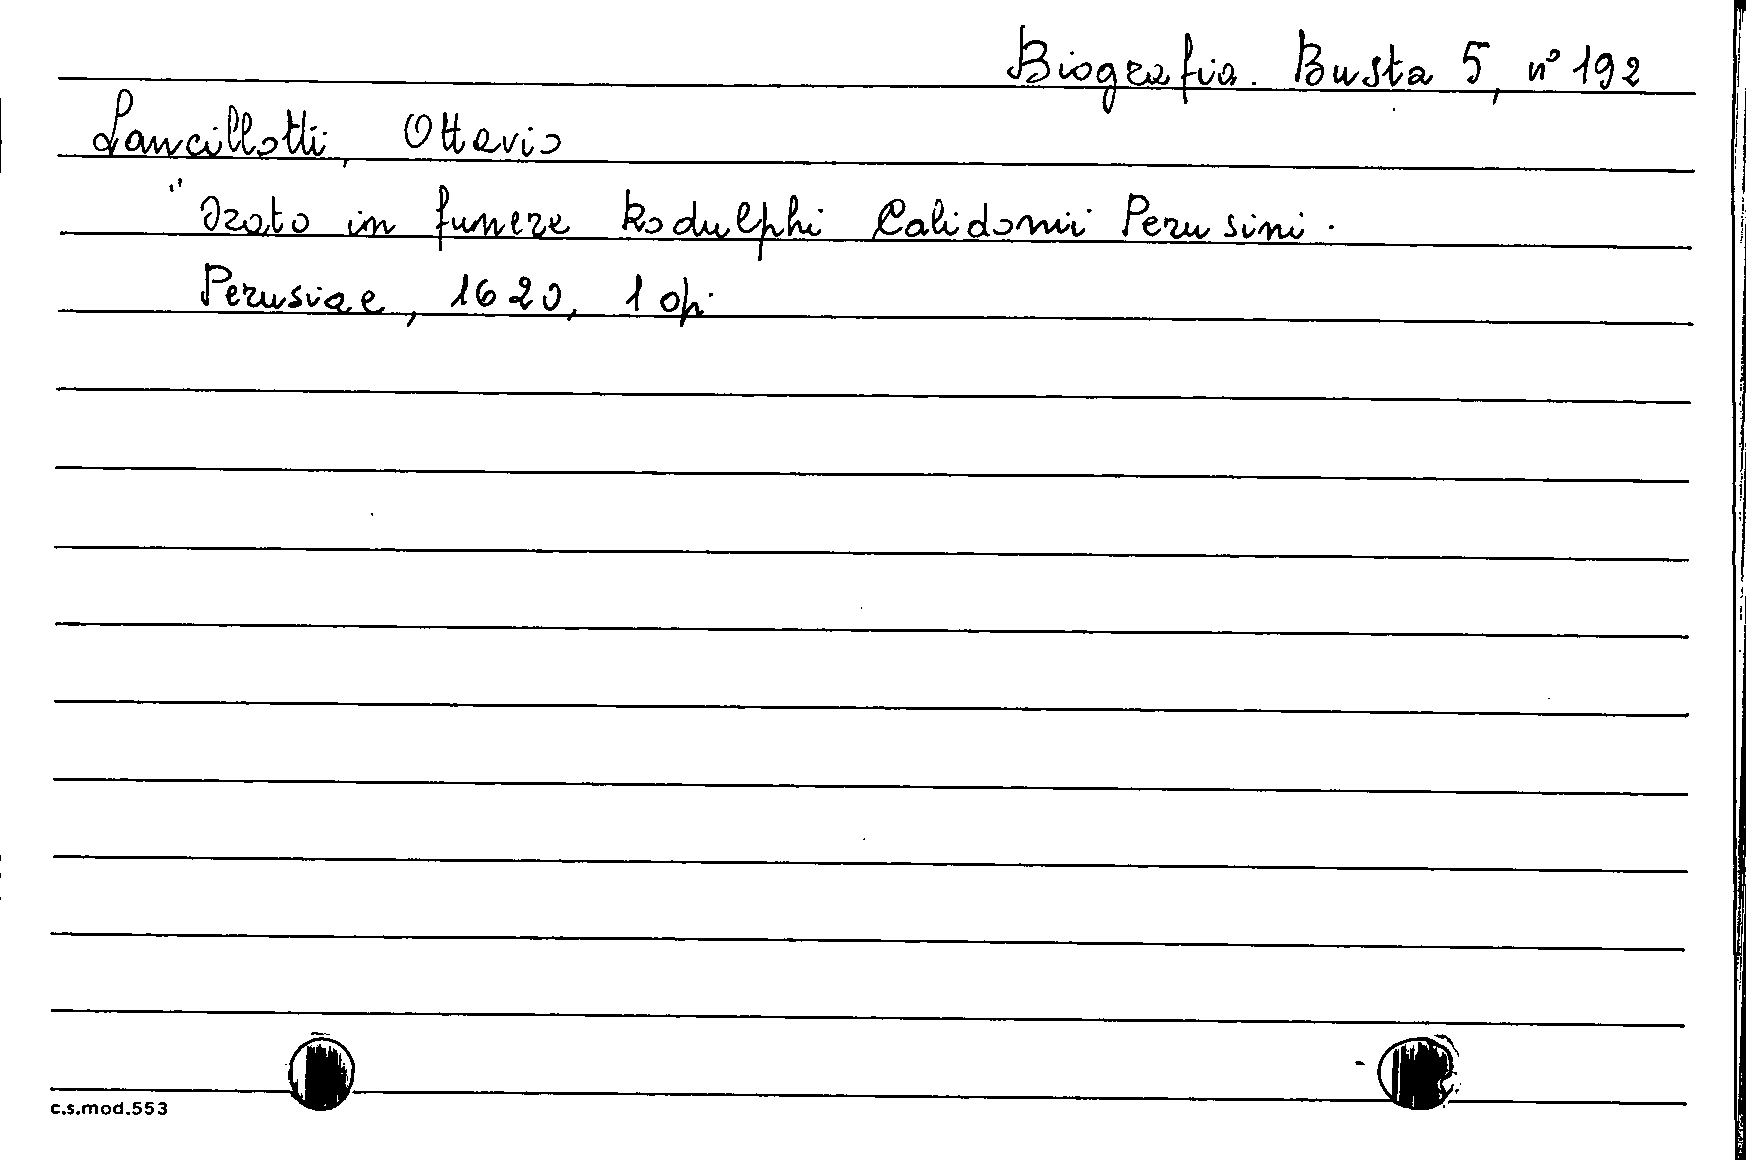 Biografia. Busta 5, n° 192
Lancillotti, Ottavio
"Orato in funere Rodulphi Calidonii Perusini.
Perusiae, 1620, 1 op.
c.s.mod.553